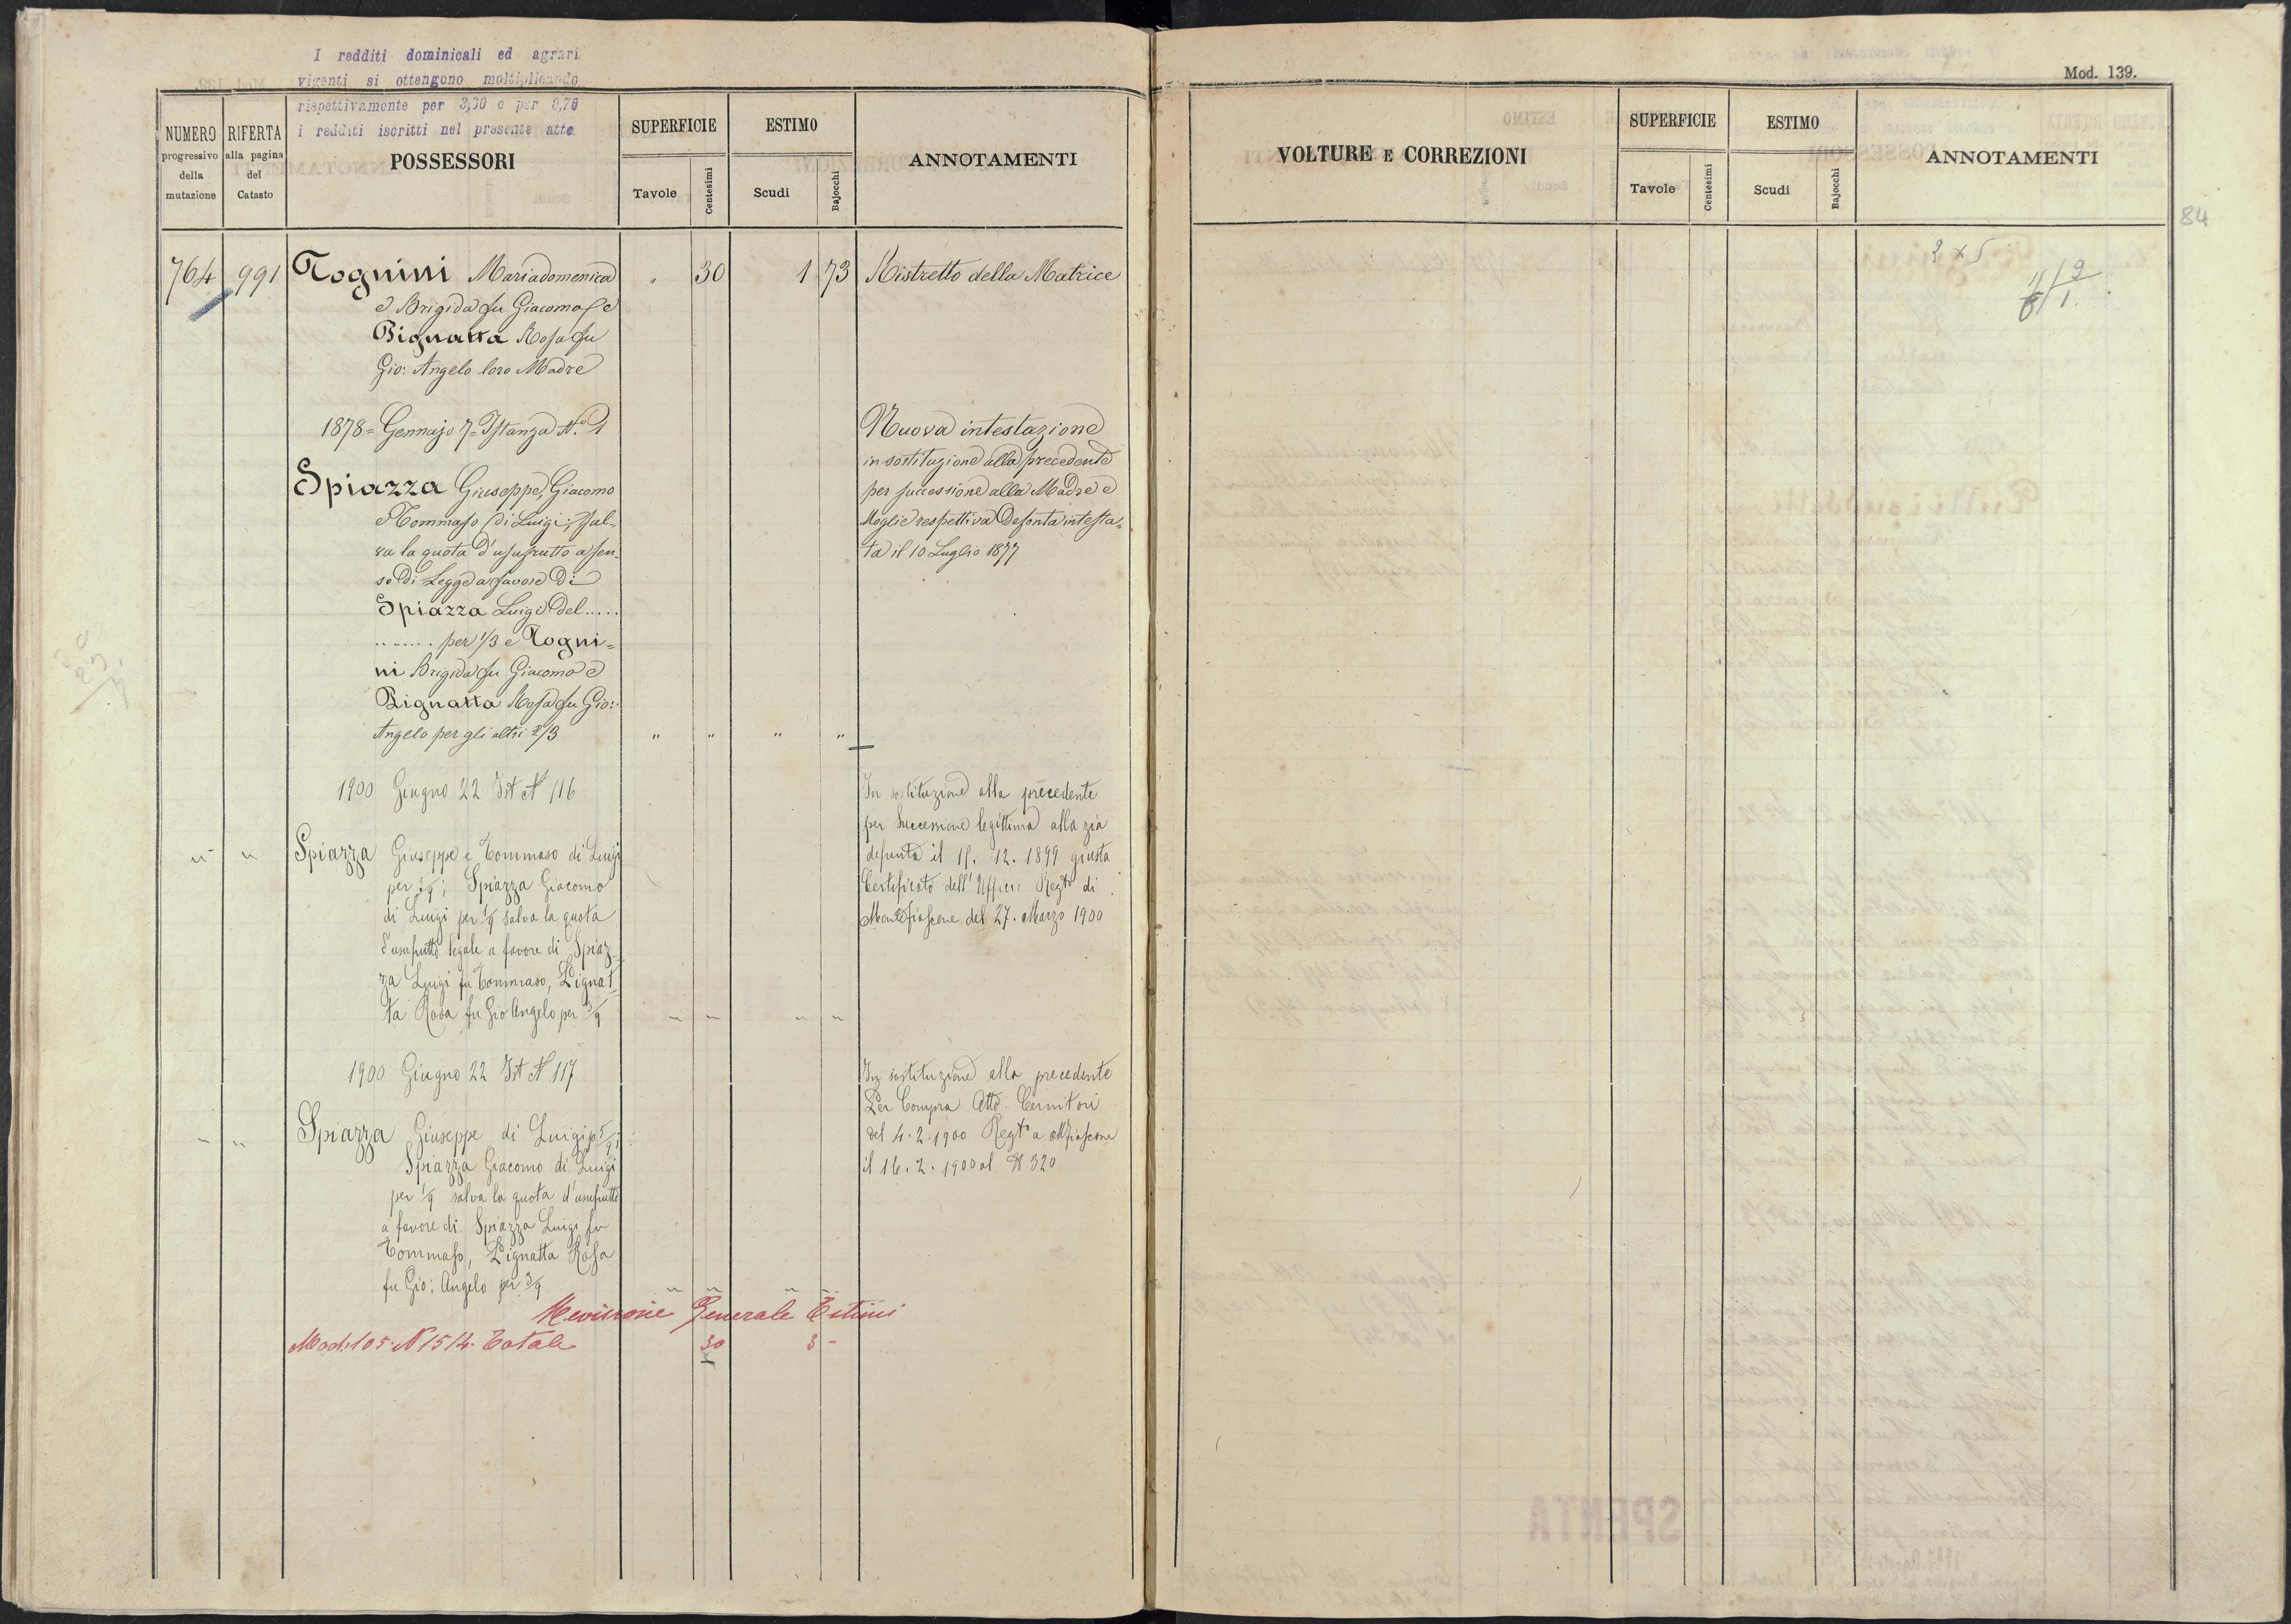 I redditi dominicali ed agrari
vigenti si ottengono moltiplicando
rispettivamente per 3,30 e per 0,70
i redditi iscritti nel presente atto
NUMERO progressivo della mutazione
RIFERTA alla pagina del Catasto
POSSESSORI
SUPERFICIE
Tavole
Centesimi
ESTIMO
Scudi
Bajocchi
ANNOTAMENTI
764 991 Tognini Mariadomenica " 30 1 73 Ristretto della Matrice
e Brigida fu Giacomo e
Pignatta Rosa fu
Gio: Angelo loro Madre
1878 = Gennajo 7 = Istanza N.º 1
Spiazza Giuseppe, Giacomo
e Tommaso di Luigi, sal-
va la quota d'usufrutto a sen-
so di Legge a favore di
Spiazza Luigi del.....
........ per 1/3 e Togni=
ni Brigida fu Giacomo e
Pignatta Rosa fu Gio:
Angelo per gli altri 2/3 " " " "
Nuova intestazione
in sostituzione alla precedente
per successione alla Madre e
Moglie respettiva defonta intesta=
ta il 10 Luglio 1877
1900 Giugno 22 Ist N 116
" " Spiazza Giuseppe e Tommaso di Luigi
per 5/9; Spiazza Giacomo
di Luigi per 1/9 salva la quota
d'usufrutto legale a favore di Spiaz-
za Luigi fu Tommaso, Pignat-
ta Rosa fu Gio Angelo per 3/9 " " " "
In sostituzione alla precedente
per Successione legittima alla zia
defunta il 12. 1899 giusta
Certificato dell'Uffici: Regto di
Montefiascone del 27. Marzo 1900
1900 Giugno 22 Ist N 117
" " Spiazza Giuseppe di Luigi p 5/9;
Spiazza Giacomo di Luigi
per 1/9 salva la quota d'usufrutto
a favore di Spiazza Luigi fu
Tommaso, Pignatta Rosa
fu Gio: Angelo per 3/9 " " " "
In sostituzione alla precedente
Per Compra Atto Cernitori
del 4.2.1900 Regto a Mfiascone
il 16.2.1900 al N 320
Revisione Generale Estimi
Mod: 105 N 1514. Totale 30 3 -
Mod. 139.
VOLTURE E CORREZIONI
SUPERFICIE
Tavole
Centesimi
ESTIMO
Scudi
Bajocchi
ANNOTAMENTI
84
SPENTA